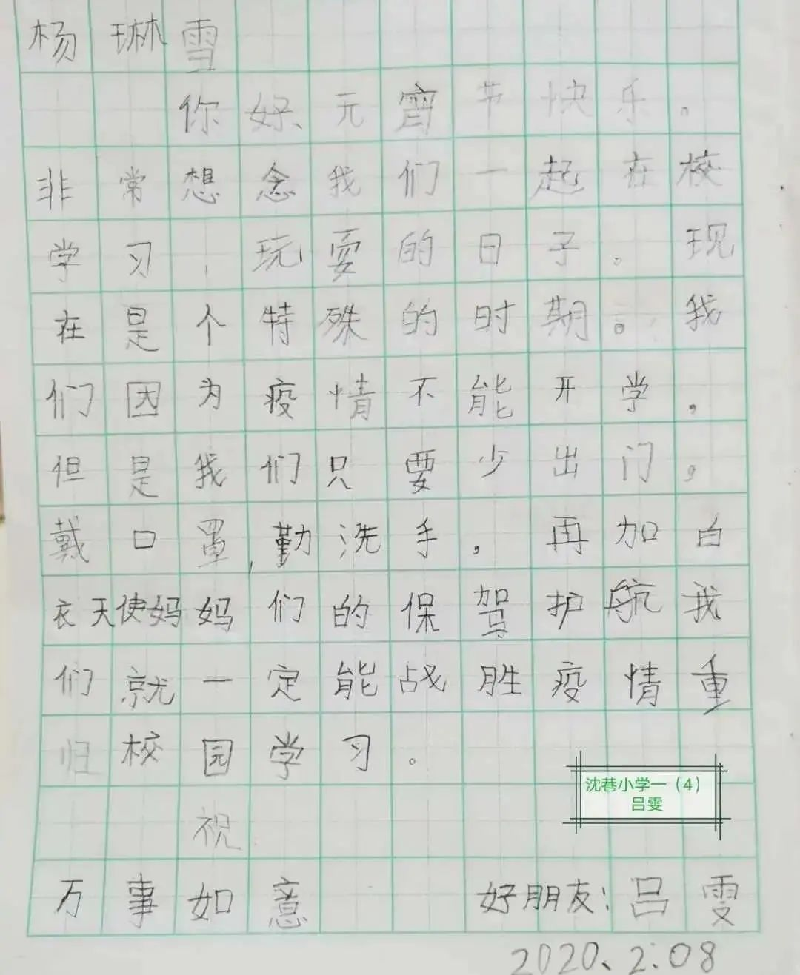 杨琳雪
你好、元宵节快乐。
非常想念我们一起在校
学习,玩耍的日子。现
在是个特殊的时期。我
们因为疫情不能开学,
但是我们只要少出门,
戴口罩,勤洗手,再加白
衣天使妈妈们的保驾护航我
们就一定能战胜疫情重
归校园学习。
沈巷小学一(4)
吕雯
祝
万事如意 好朋友:吕雯
2020、2.08